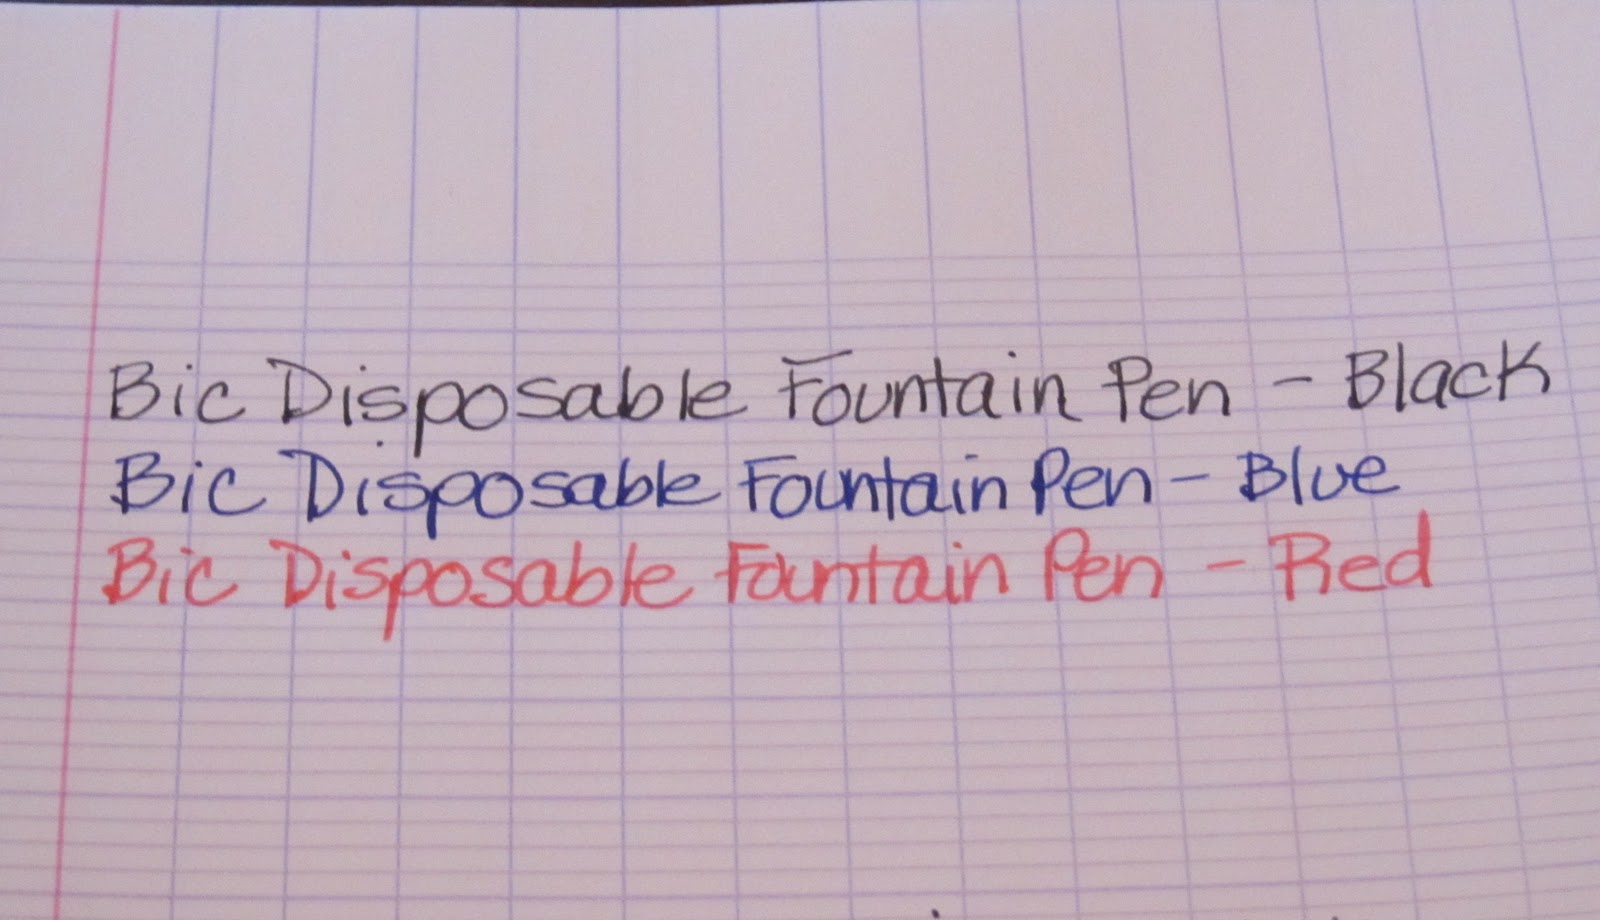 Bic Disposable Fountain Pen - Black
Bic Disposable Fountain Pen - Blue
Bic Disposable Fountain Pen - Red